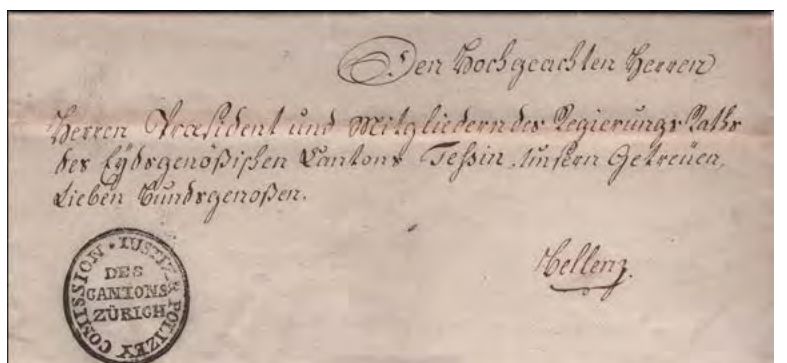 Den Hochgeachten Herren
Herren Præsident und Mitgliedern des Regierungs Raths
des Eydsgenößischen Cantons Teßin, Unsern Getreüen,
Lieben Bundsgenoßen.
Bellenz.
IUSTIZ & POLIZEY COMISSION
DES
CANTONS
ZÜRICH